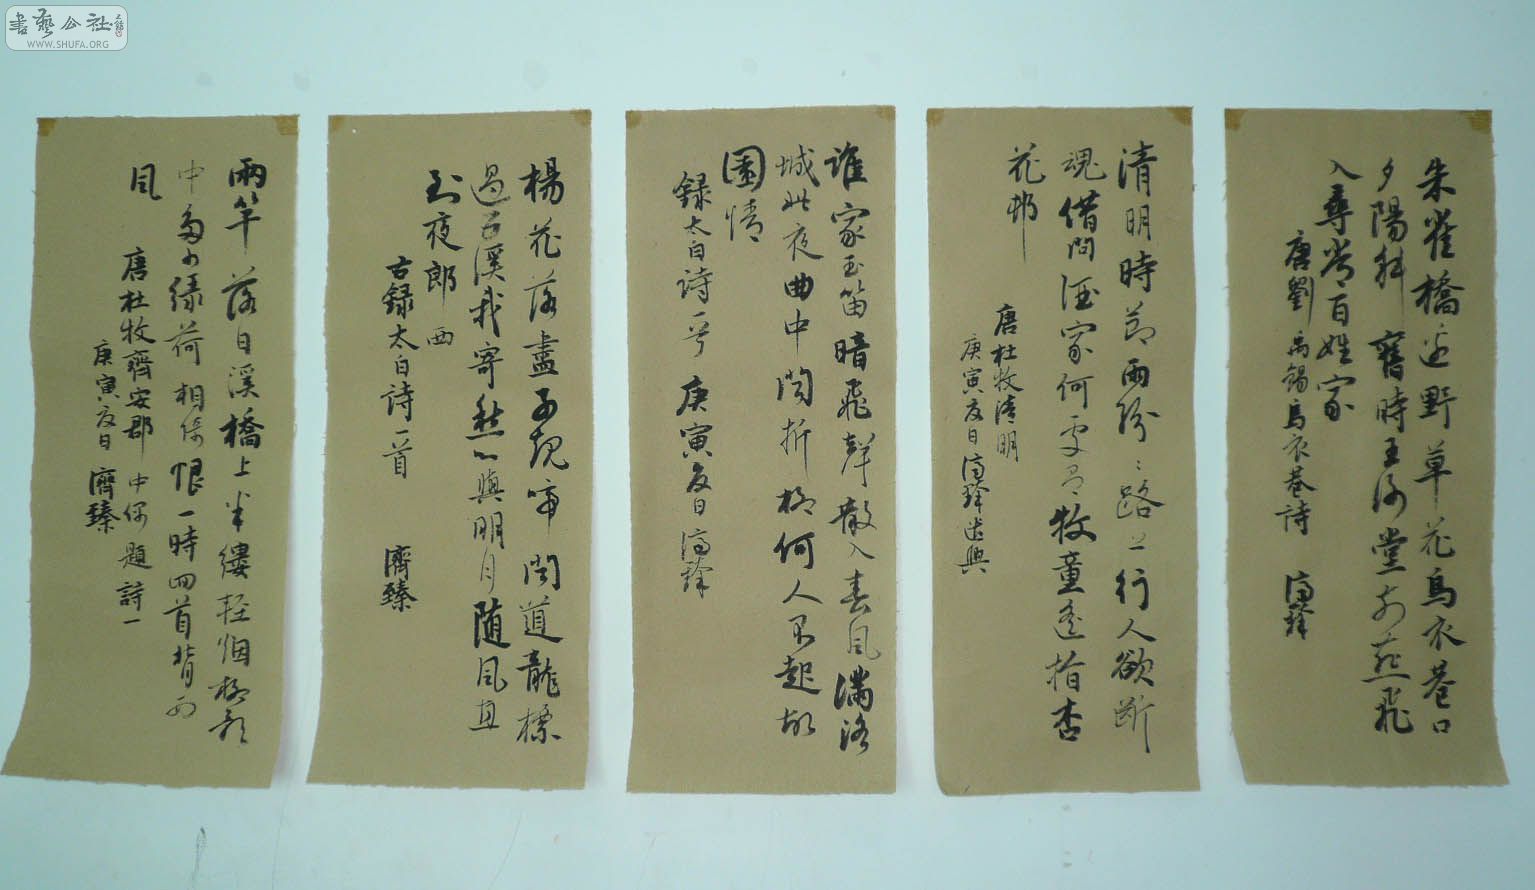 書藝公社
WWW.SHUFA.ORG
朱雀橋邊野草花烏衣巷口
夕陽斜舊時王謝堂前燕飛
入尋常百姓家
唐劉禹錫烏衣巷詩 濟臻
清明時節雨紛〻路上行人欲斷
魂借問酒家何處是牧童遙指杏
花邨
唐杜牧清明
庚寅夏日濟臻
誰家玉笛暗飛聲散入春風滿洛
城此夜曲中聞折柳何人不起故
園情
録太白詩一首 庚寅夏日濟臻
楊花落盡子規啼聞道龍標
過五溪我寄愁心與明月随風直
到夜郎西
右録太白詩一首 濟臻
兩竿落日溪橋上半縷輕烟柳影
中多少緑荷相倚恨一時回首背西
風
唐杜牧齊安郡中偶題詩一
庚寅夏日 濟臻